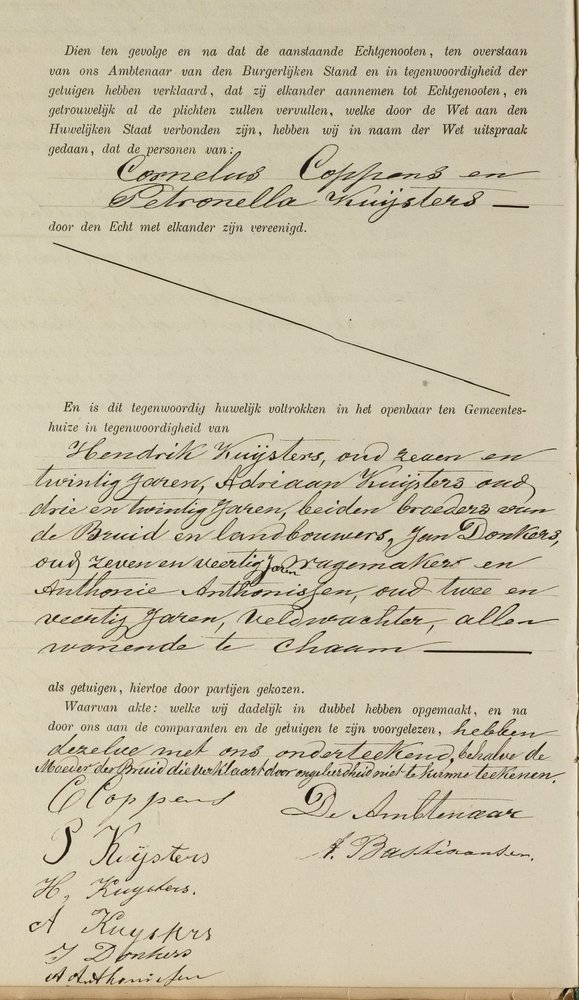 Dien ten gevolge en na dat de aanstaande Echtgenooten, ten overstaan
van ons Ambtenaar van den Burgerlijken Stand en in tegenwoordigheid der
getuigen hebben verklaard, dat zij elkander aannemen tot Echtgenooten, en
getrouwelijk al de plichten zullen vervullen, welke door de Wet aan den
Huwelijken Staat verbonden zijn, hebben wij in naam der Wet uitspraak
gedaan, dat de personen van:
Cornelus Coppens en
Petronella Kuijsters —
door den Echt met elkander zijn vereenigd.
En is dit tegenwoordig huwelijk voltrokken in het openbaar ten Gemeentes-
huize in tegenwoordigheid van
Hendrik Kuijsters, oud zeven en
twintig Jaren, Adriaan Kuijsters oud
drie en twintig Jaren, beiden broeders van
de Bruid en landbouwers, Jan Donkers,
oud zeven en veertig Jaren wagemaker en
Anthonie Anthonissen, oud twee en
veertig Jaren, veldwachter, allen
wonende te Chaam —
als getuigen, hiertoe door partijen gekozen.
Waarvan akte: welke wij dadelijk in dubbel hebben opgemaakt, en na
door ons aan de comparanten en de getuigen te zijn voorgelezen, hebben
dezelve met ons onderteekend, behalve de
Moeder der Bruid die verklaart door ongeleerdheid niet te kunne teekenen.
C Coppens De Ambtenaar
P Kuijsters A. Bastiaansen.
H, Kuysters.
A Kuysters
J Donkers
A Anthonissen